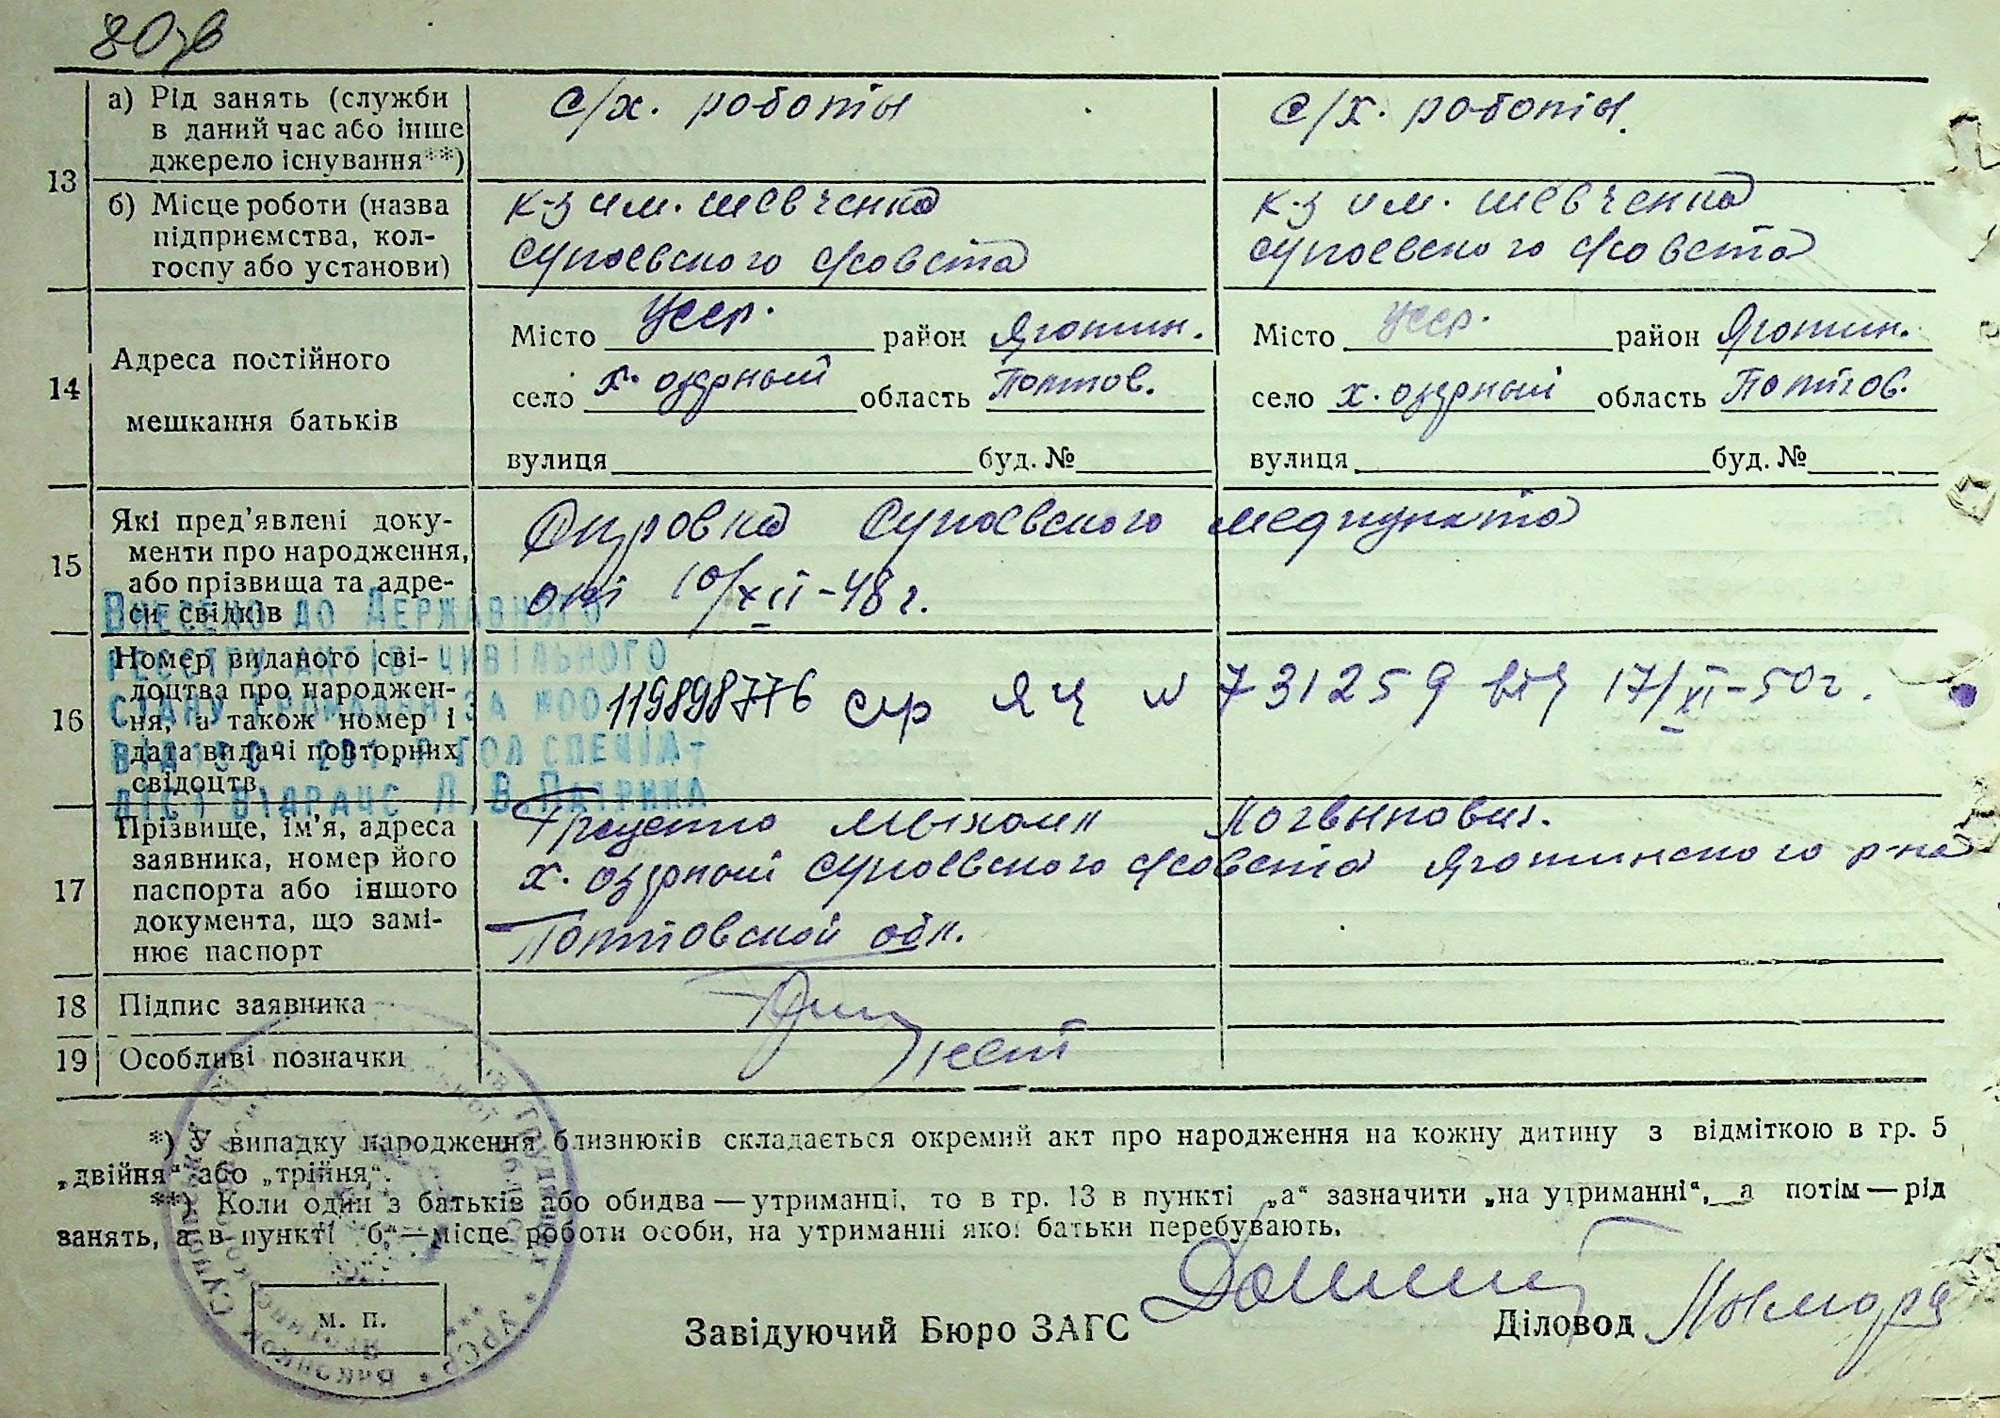 80зв
13
а) Рід занять (служби
в даний час або інше
джерело існування**)
с/х. роботы
с/х. роботы.
б) Місце роботи (назва
підприємства, кол-
госпу або установи)
к-з им. шевченка
супоевского с/совета
к-з им. шевченка
супоевского с/совета
14
Адреса постійного
мешкання батьків
Місто усср. район Яготин.
село х. озерный область Полтов.
вулиця буд. №
Місто усср. район Яготин.
село х. озерный область Полтов.
вулиця буд. №
15
Які пред'явлені доку-
менти про народження,
або прізвища та адре-
си свідків
Справка Супоевского медпункта
от 10/XII-48 г.
Внесено до Державного
реєстру актів цивільного
стану громадян за №00
16
Номер виданого сві-
доцтва про народжен-
ня, а також номер і
дата видачі повторних
свідоцтв
119898776 сер ЯЦ № 731259 від 17/XI-50 г.
17
Прізвище, ім'я, адреса
заявника, номер його
паспорта або іншого
документа, що замі-
нює паспорт
Логвынович.
х. озерный Супоевского с/совета Яготинского р-на
Полтовской обл.
18
Підпис заявника
19
Особливі позначки
нет
*) У випадку народження близнюків складається окремий акт про народження на кожну дитину з відміткою в гр. 5
„двійня“ або „трійня“.
**) Коли один з батьків або обидва — утриманці, то в гр. 13 в пункті „а“ зазначити „на утриманні“, а потім — рід
занять, а в пункті „б“ — місце роботи особи, на утриманні якої батьки перебувають.
м. п.
Завідуючий Бюро ЗАГС
Діловод